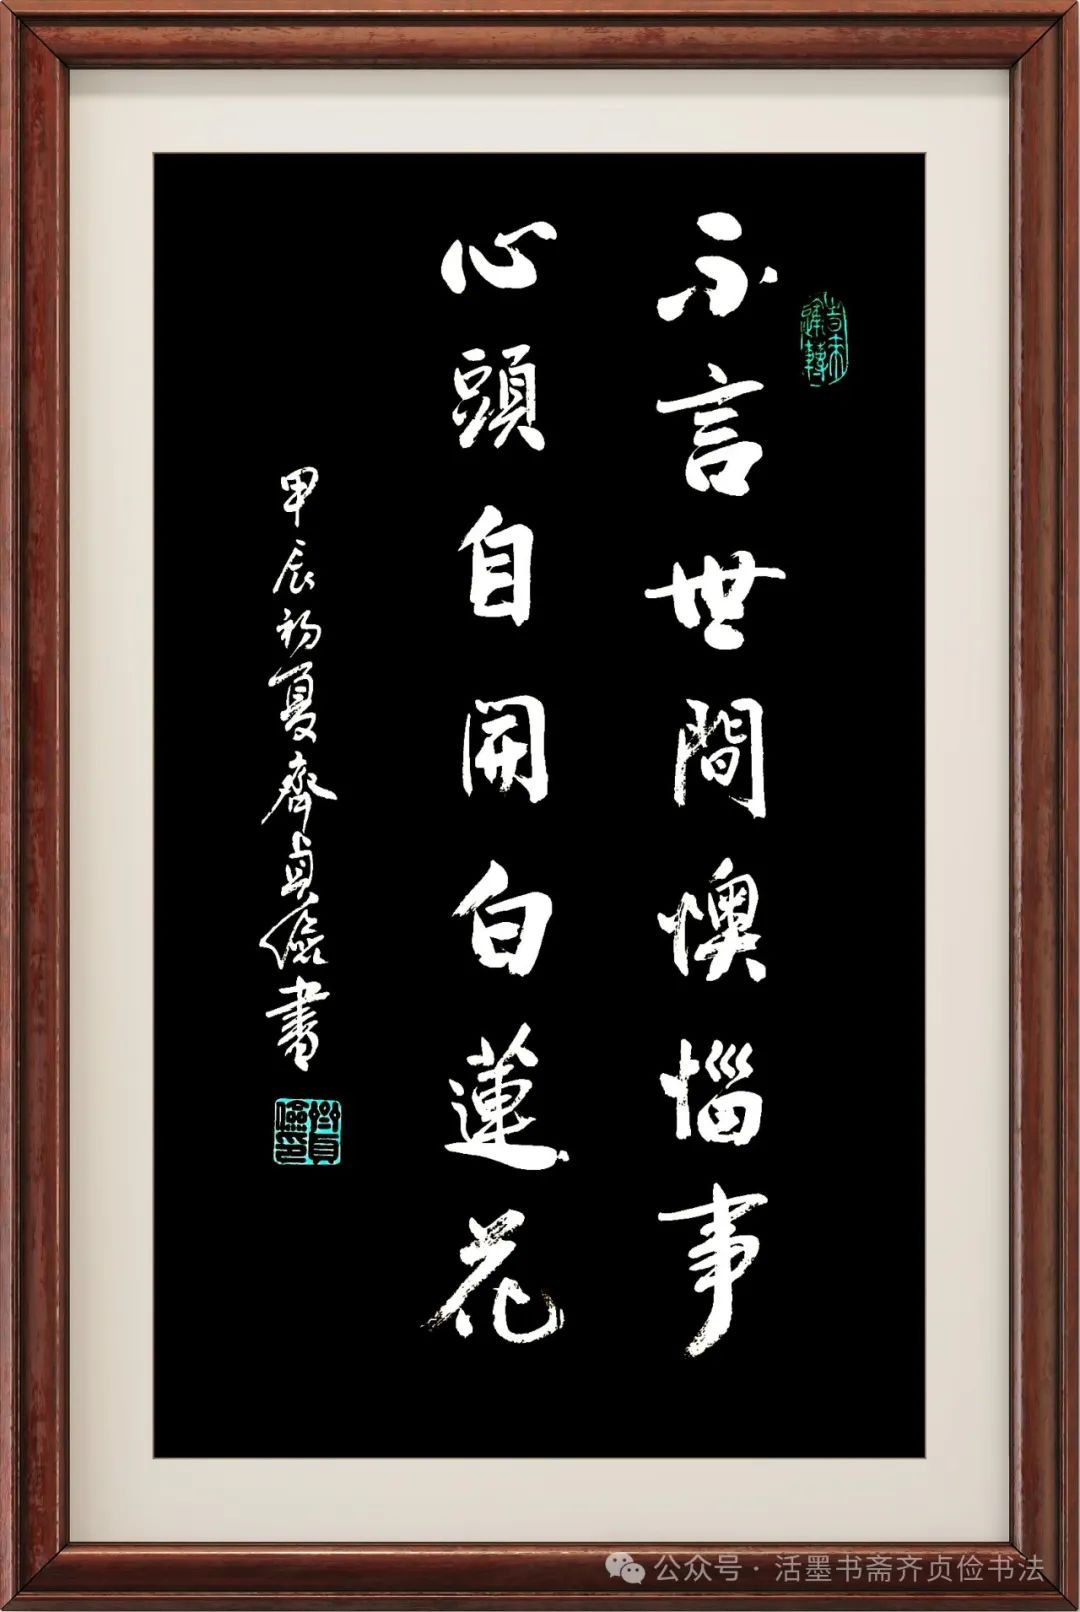 不言世間懊惱事
心頭自開白蓮花
甲辰初夏齊貞儉書
公众号·活墨书斋齐贞俭书法